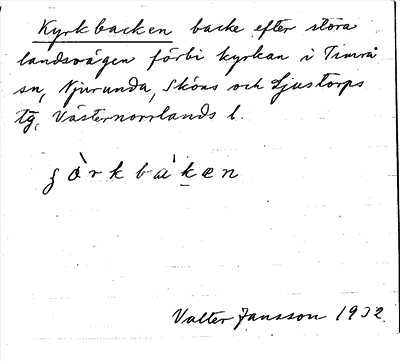 Kyrkbacken backe efter stora
landsvägen förbi kyrkan i Timrå
sn, Njurunda, Sköns och Ljustorps
tg, Västernorrlands l.
Valter Jansson 1932